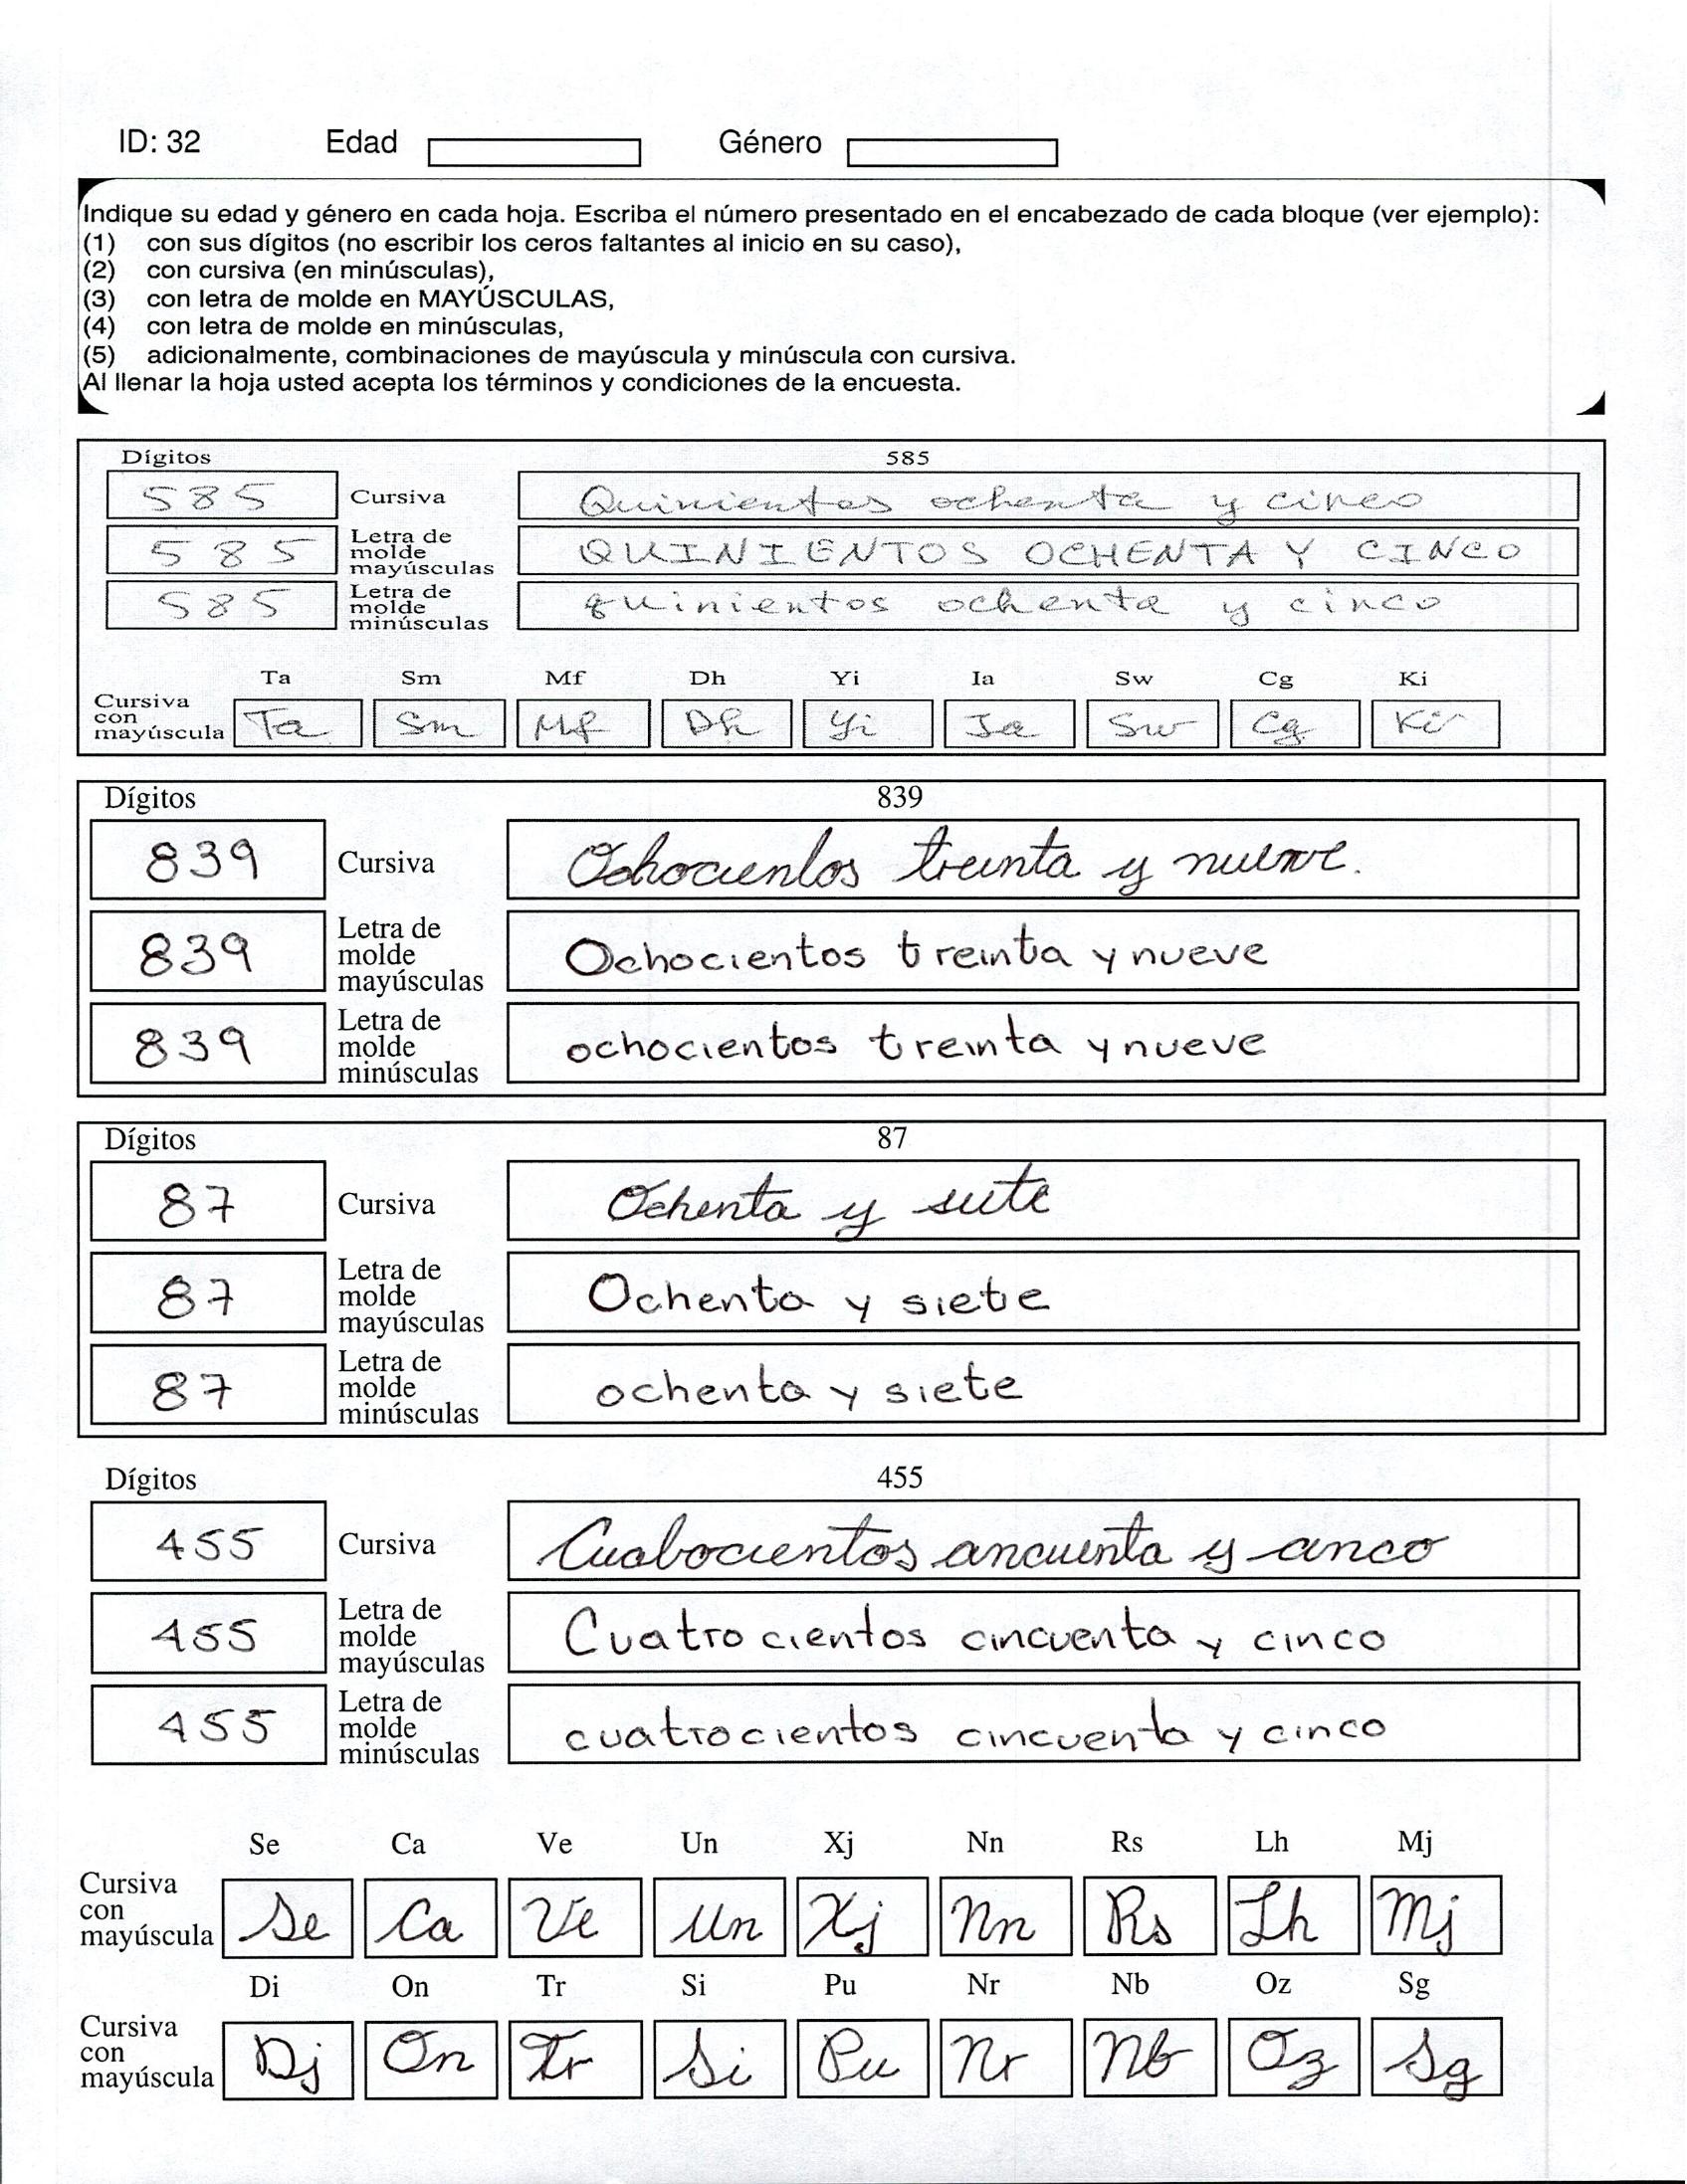 ID: 32 Edad Género
Indique su edad y género en cada hoja. Escriba el número presentado en el encabezado de cada bloque (ver ejemplo):
(1) con sus dígitos (no escribir los ceros faltantes al inicio en su caso),
(2) con cursiva (en minúsculas),
(3) con letra de molde en MAYÚSCULAS,
(4) con letra de molde en minúsculas,
(5) adicionalmente, combinaciones de mayúscula y minúscula con cursiva.
Al llenar la hoja usted acepta los términos y condiciones de la encuesta.
Dígitos 585
585 Cursiva Quinientos ochenta y cinco
585 Letra de molde mayúsculas QUINIENTOS OCHENTA Y CINCO
585 Letra de molde minúsculas quinientos ochenta y cinco
Ta Sm Mf Dh Yi Ia Sw Cg Ki
Cursiva con mayúscula Ta Sm Mf Dh Yi Ia Sw Cg Ki
Dígitos 839
839 Cursiva Ochocientos treinta y nueve.
839 Letra de molde mayúsculas Ochocientos treinta y nueve
839 Letra de molde minúsculas ochocientos treinta y nueve
Dígitos 87
87 Cursiva Ochenta y siete
87 Letra de molde mayúsculas Ochenta y siete
87 Letra de molde minúsculas ochenta y siete
Dígitos 455
455 Cursiva Cuatrocientos cincuenta y cinco
455 Letra de molde mayúsculas Cuatro cientos cincuenta y cinco
455 Letra de molde minúsculas cuatrocientos cincuenta y cinco
Se Ca Ve Un Xj Nn Rs Lh Mj
Cursiva con mayúscula Se Ca Ve Un Xj Nn Rs Lh Mj
Di On Tr Si Pu Nr Nb Oz Sg
Cursiva con mayúscula Dj On Tr Si Pu Nr Nb Oz Sg